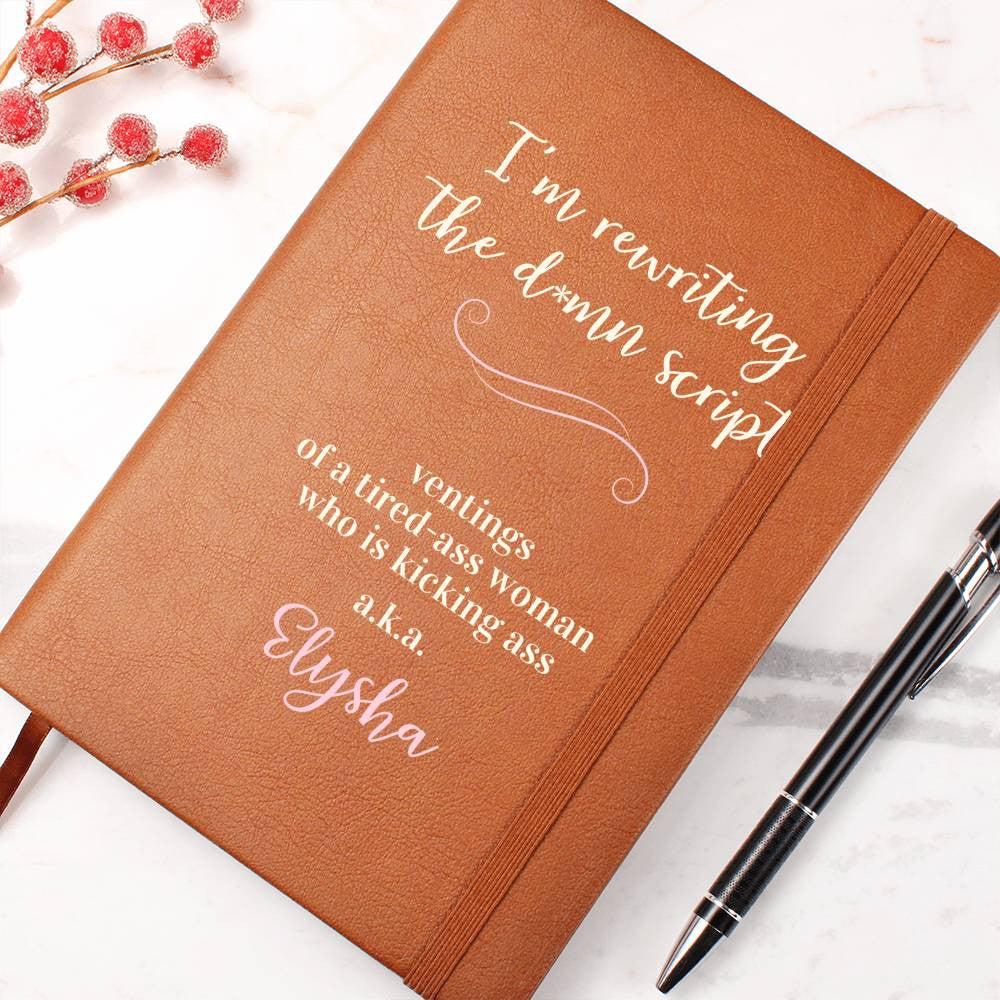 I'm rewriting
the d*mn script
ventings
of a tired-ass woman
who is kicking ass
a.k.a.
Elysha